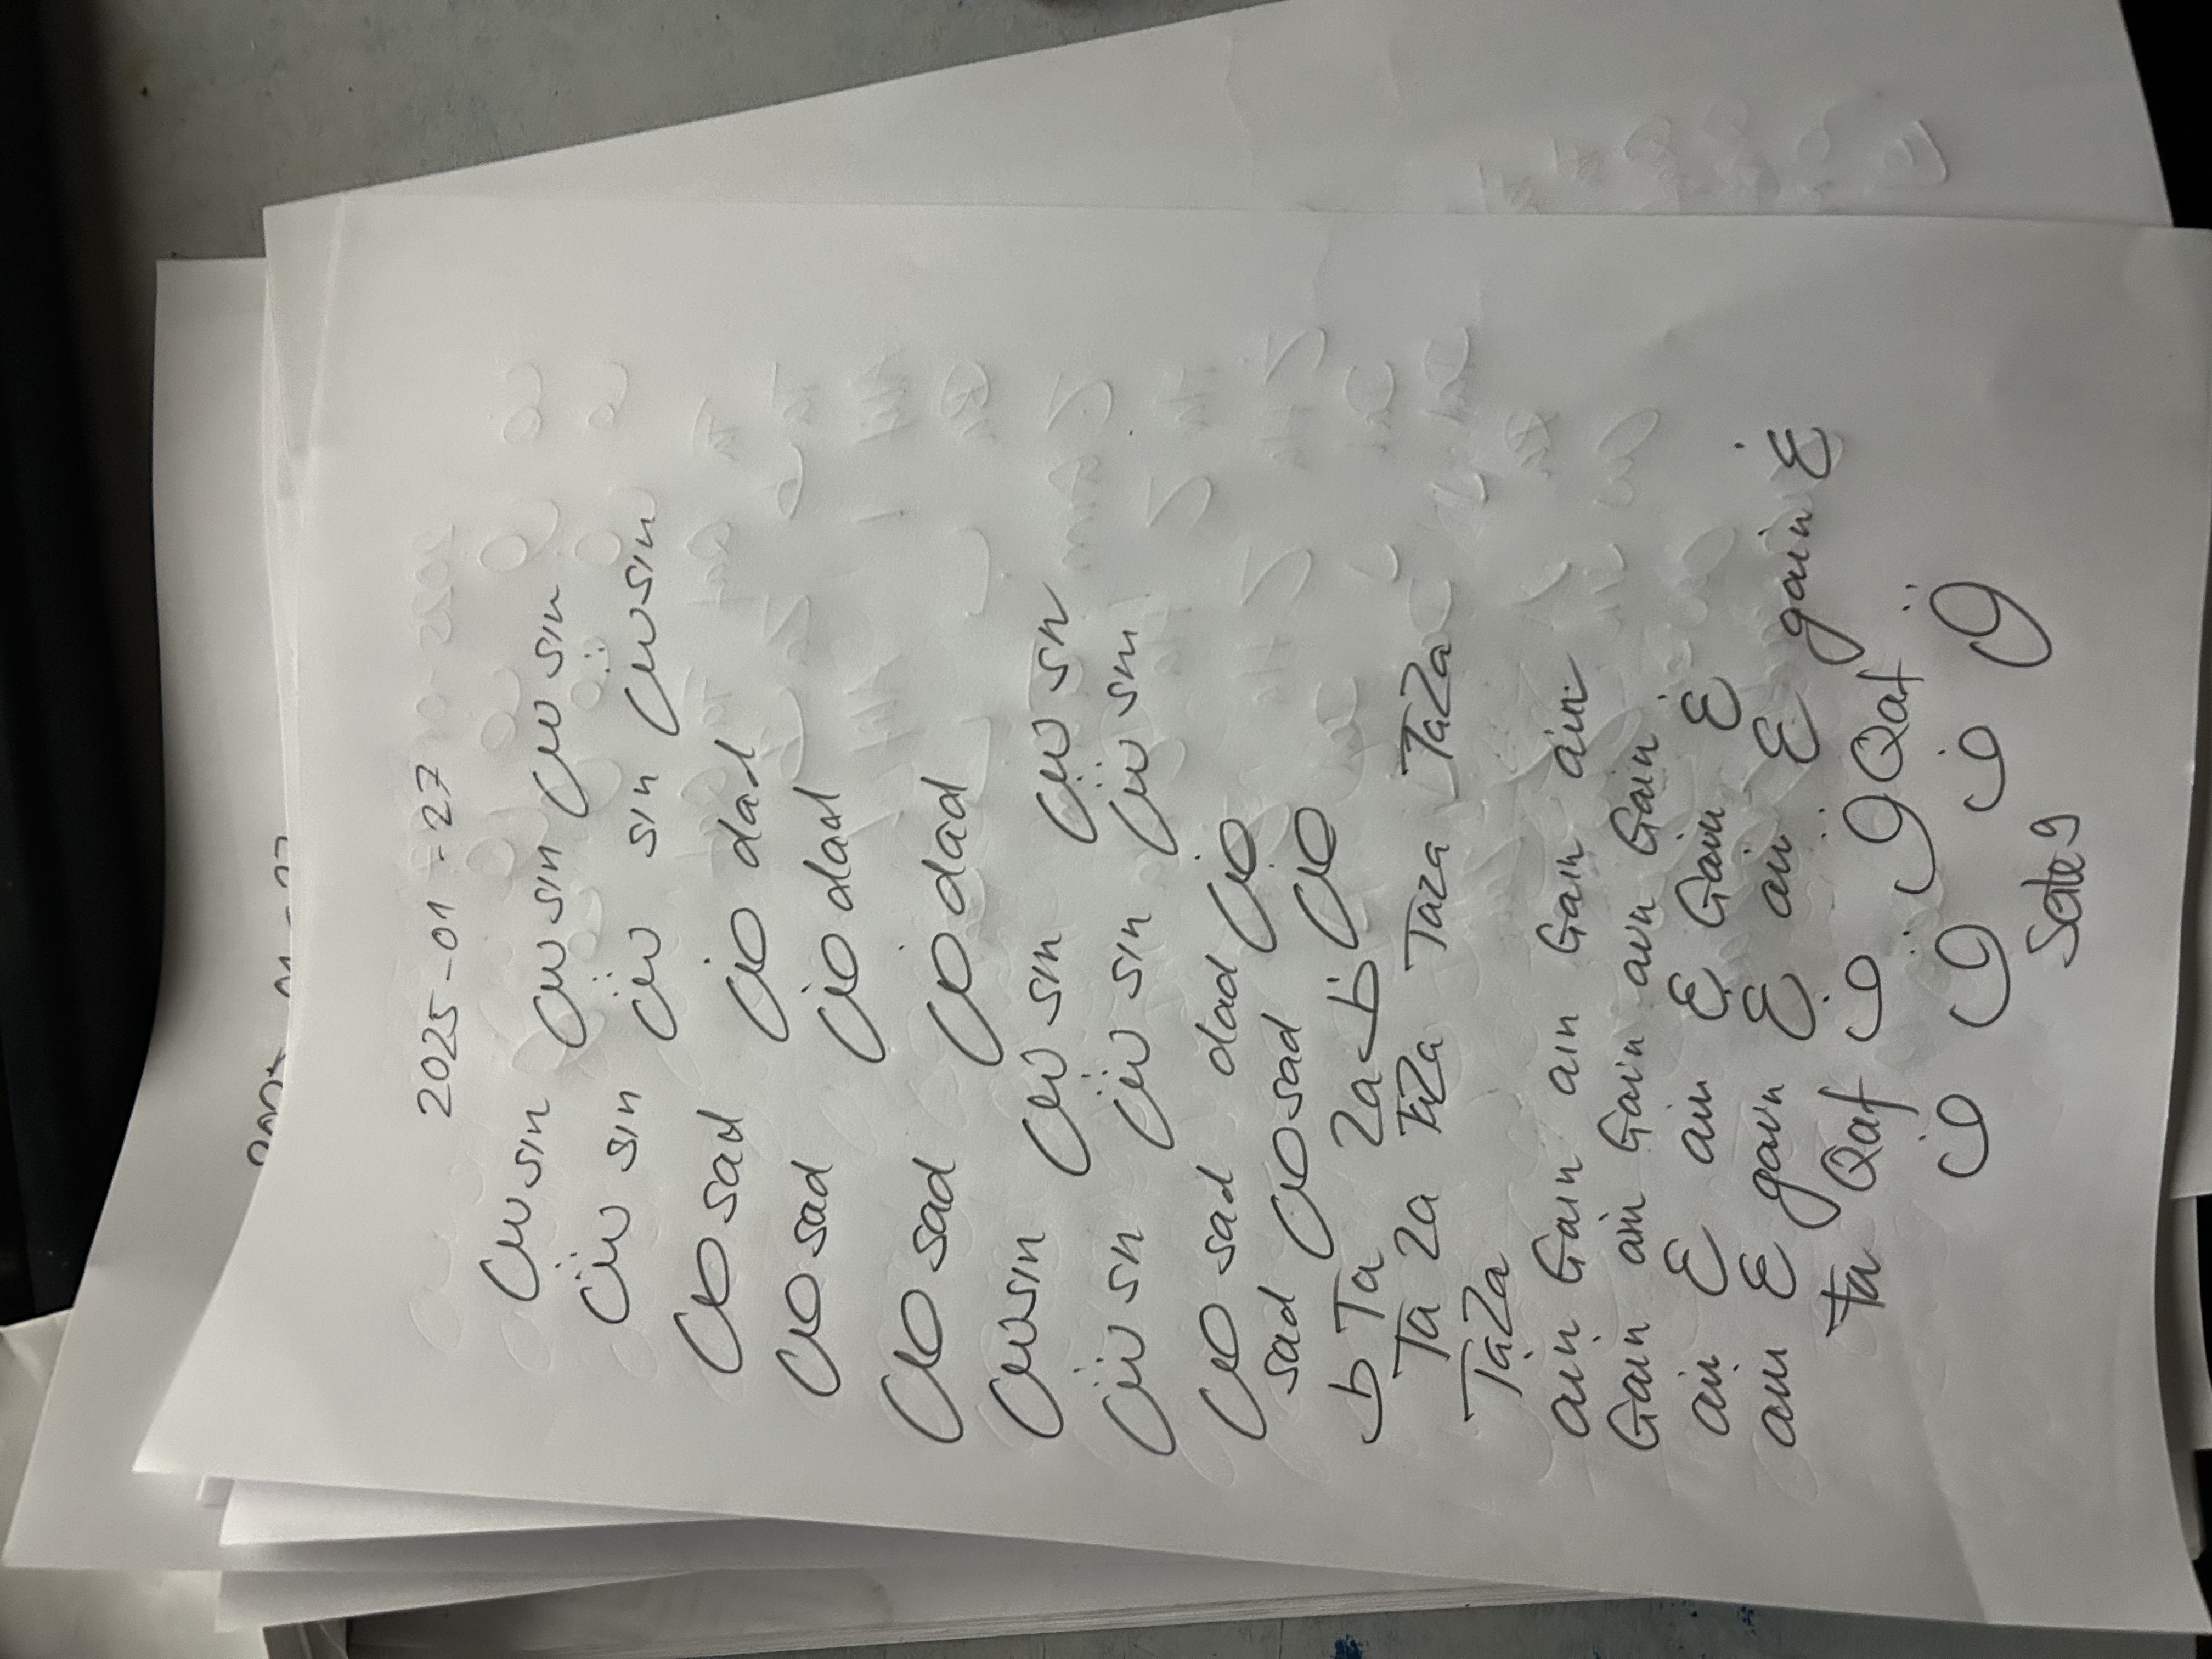 2025-01-27
س sin س sin س sin
ش sin ش sin س sin
ص sad ض dad
ص sad ض dad
ص sad ض dad
س sin س sin ش sin
ش sin ش sin ش sin
ص sad dad ض
sad ص sad ض
ط Ta Za ظ
Ta Za TaZa TaZa TaZa
TaZa
ain Gain ain Gain ain
Gain ain Gain ain Gain
ain ع ain غ Gain غ
ain ع gain غ ain ع gain غ
Ta Qaf ف ق Qaf
ف ق ف ق